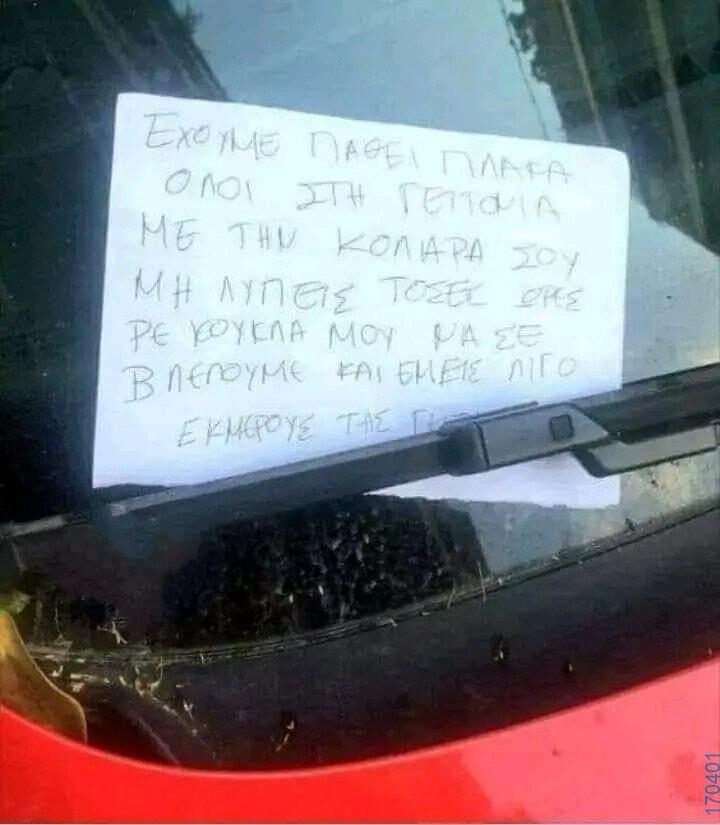 ΕΧΟΥΜΕ ΠΑΘΕΙ ΠΛΑΚΑ
ΟΛΟΙ ΣΤΗ ΓΕΙΤΟΝΙΑ
ΜΕ ΤΗΝ ΚΩΛΑΡΑ ΣΟΥ
ΜΗ ΛΥΠΕΙΣ ΤΟΣΕΣ ΩΡΕΣ
ΡΕ ΚΟΥΚΛΑ ΜΟΥ ΝΑ ΣΕ
ΒΛΕΠΟΥΜΕ ΚΑΙ ΕΜΕΙΣ ΛΙΓΟ
ΕΚΜΕΡΟΥΣ ΤΗΣ
170401